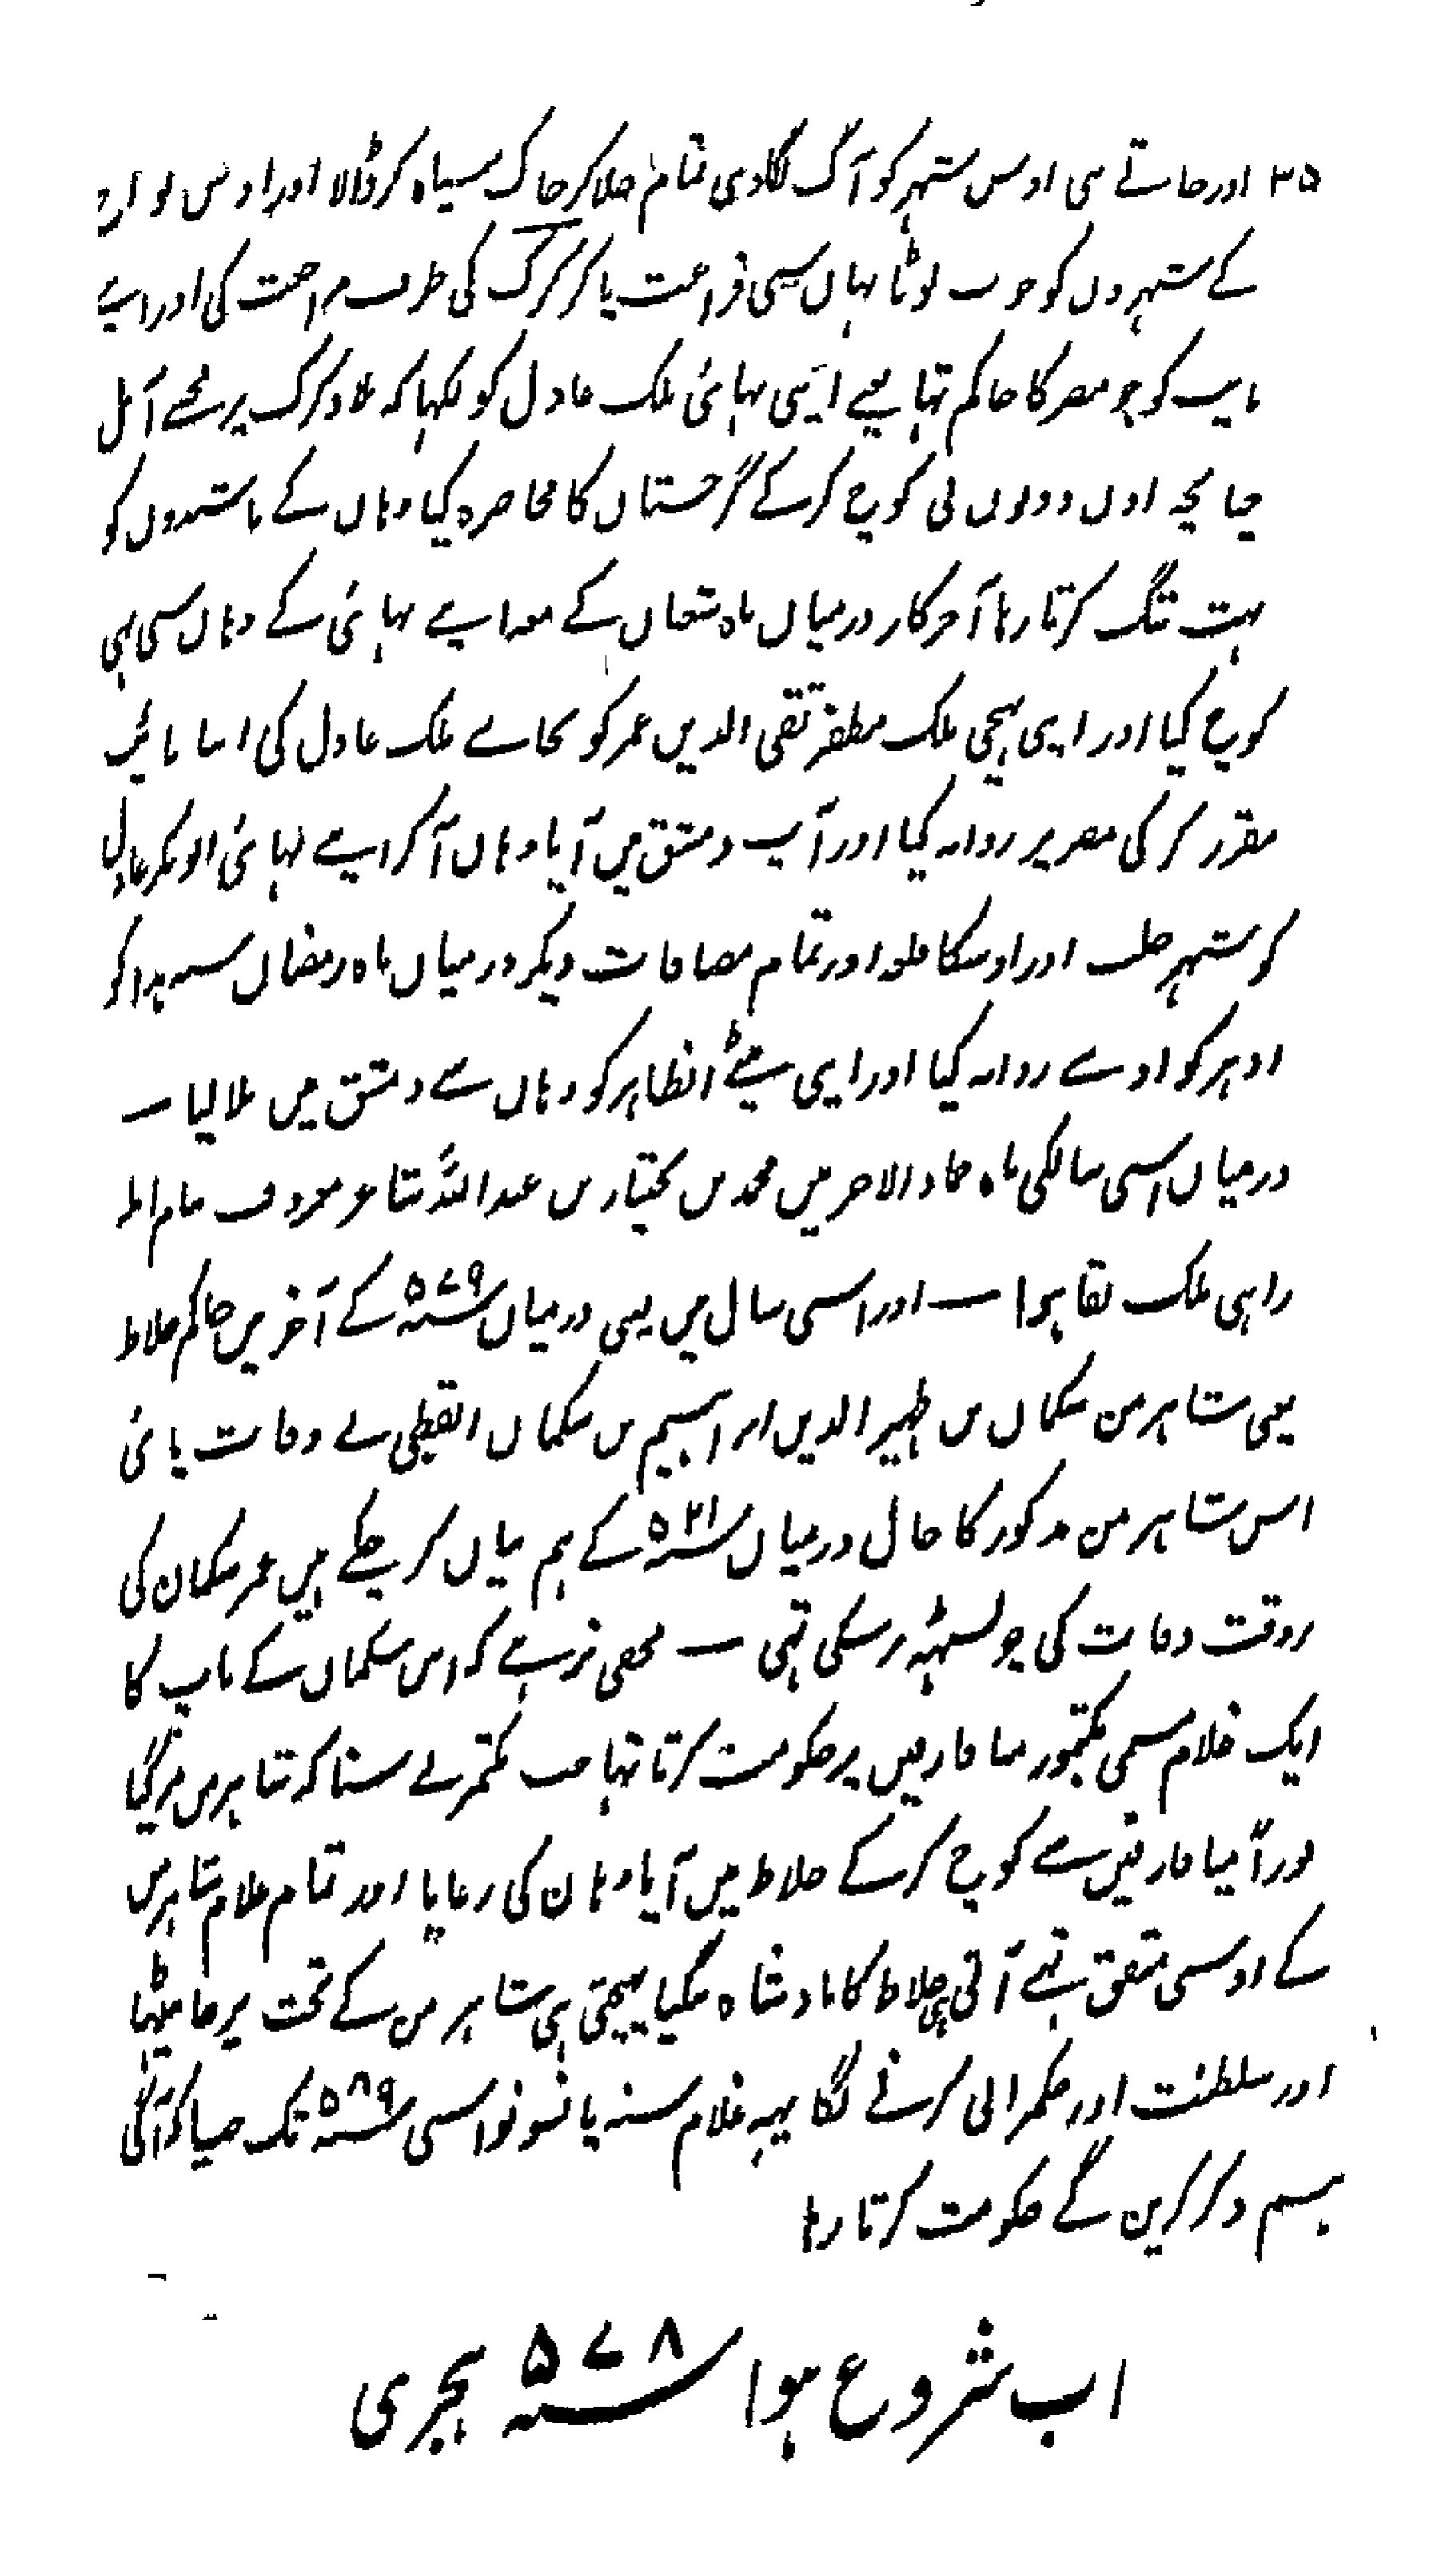 ۲۵ اور جاتے ہی اوس شہر کو آگ لگادی تمام جلا کر خاک سیاہ کر ڈالا اور اوس نواح
کے شہروں کو خوب لوٹا یہاں سی فراغت پا کر کرک کی طرف مراجعت کی اور اپنے
نایب کو جو مصر کا حاکم تہا یعنے اپنی بہائی ملک عادل کو لکہا کہ بلاد کرک پر مجھے آ مل
چنانچہ اون دونوں نی کوچ کر کے گرجستان کا محاصرہ کیا وہاں کے باشندوں کو
بہت تنگ کرتا رہا آخر کار درمیان ماہ شعبان کے معہ اپنے بہائی کے وہاں سی بہی
کوچ کیا اور اپنی بہتیجی ملک مظفر تقی الدین عمر کو بجاے ملک عادل کی اپنا نائب
مقرر کر کی مصر پر روانہ کیا اور آپ دمشق میں آیا وہاں آ کر اپنے بہائی ابو بکر عادل
کو شہر حلب اور اوسکا قلعہ اور تمام مضافات دیکر درمیان ماہ رمضان سنہ ہذا کو
ادہر کو اوسے روانہ کیا اور اپنی بیٹے الظاہر کو وہاں سے دمشق میں بلا لیا ــ
درمیان اسی سالکی ماہ جماد الاخر میں محمد بن بختیار بن عبد اللہ شاعر معروف بنام ابلہ
راہی ملک بقا ہوا ــ اور اسی سال میں یعنی درمیان سنہ ۵۷۹ کے آخر میں حاکم خلاط
یعنی شاہرمن سکمان بن ظہیر الدین ابراہیم بن سکمان القطبی نے وفات پائی
اس شاہرمن مذکور کا حال درمیان سنہ ۵۲۱ کے ہم بیان کر چکے ہیں عمر سکمان کی
بروقت وفات کی چونسہٹہ برسکی تہی ــ مخفی نرہے کہ اس سکمان کے باپ کا
ایک غلام مسمی بکتمور میا فارقین پر حکومت کرتا تہا جب بکتمر نے سنا کہ شاہرمن مر گیا
فوراً میا فارقین سے کوچ کر کے خلاط میں آیا وہان کی رعایا اور تمام غلام شاہرمن
کے اوسی متفق تہے آتی ہی خلاط کا بادشاہ بنگیا پہنچتی ہی شاہرمن کے تخت پر جا بیٹہا
اور سلطنت اور حکمرانی کرنے لگا یہہ غلام سنہ پانسو نواسی سنہ ۵۸۹ تک جیسا کہ آگی
ہم ذکر کرین گے حکومت کرتا رہا
اب شروع ہوا سنہ ۵۷۸ ہجری